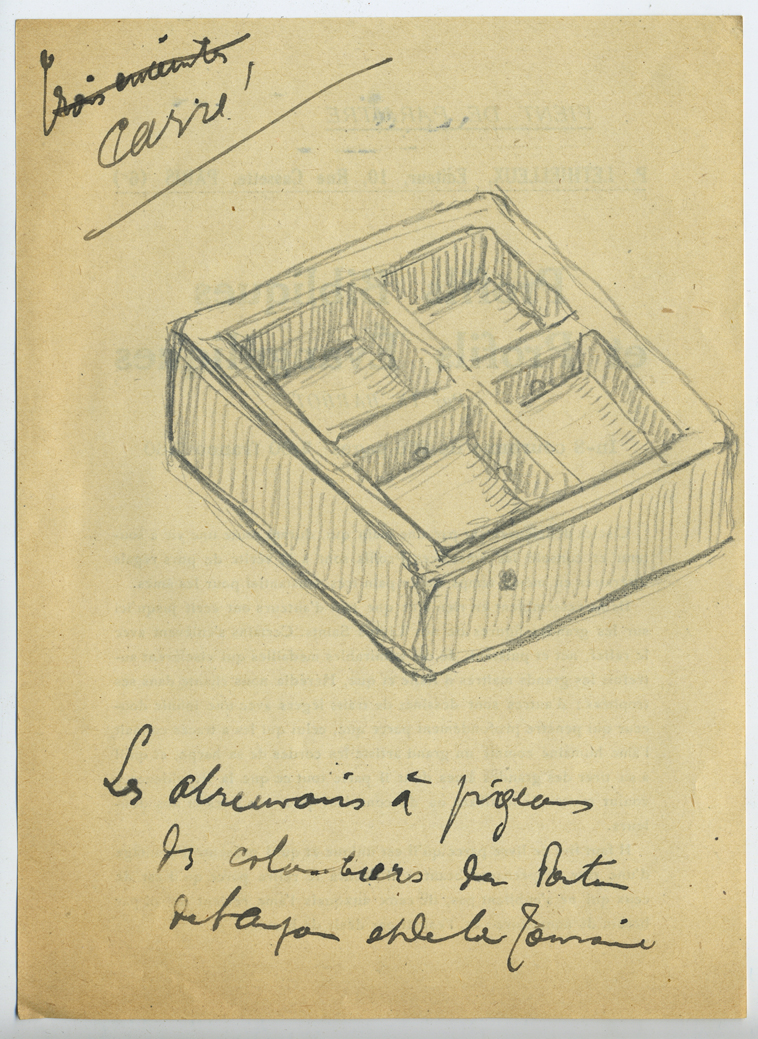 Trois enceintes
Carré !
Les abreuvoirs à pigeons
des colombiers du Poitou
de l'Anjou et de la Touraine